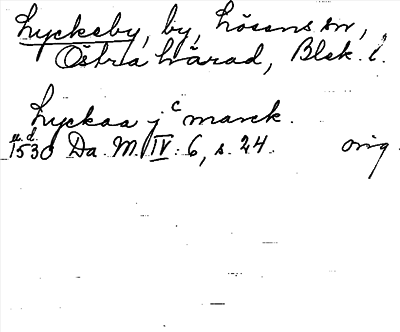 Lyckeby, by, Lösens sn,
Östra härad, Blek. l.
Lyckaa j c marck.
u. d.
1530 Da. M. IV: 6, s. 24. orig.